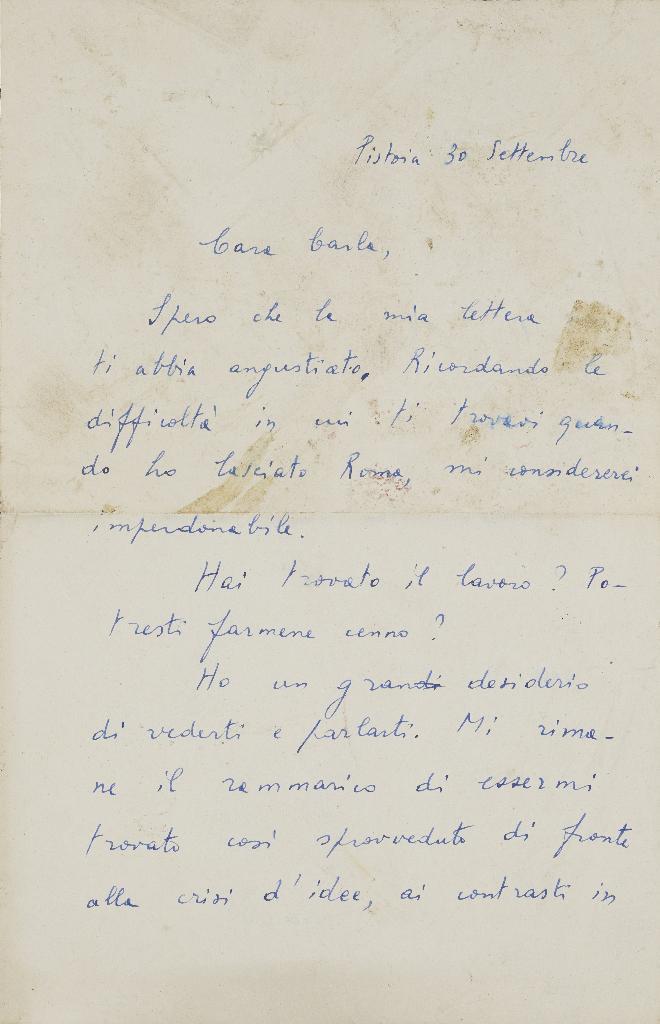 Pistoia 30 Settembre
Cara Carla,
Spero che la mia lettera
ti abbia angustiato. Ricordando le
difficoltà in cui ti trovavi quan-
do ho lasciato Roma, mi considererei
imperdonabile.
Hai trovato il lavoro? Po-
tresti farmene cenno?
Ho un grandi desiderio
di vederti e parlarti. Mi rima-
ne il rammarico di essermi
trovato così sprovveduto di fronte
alla crisi d'idee, ai contrasti in